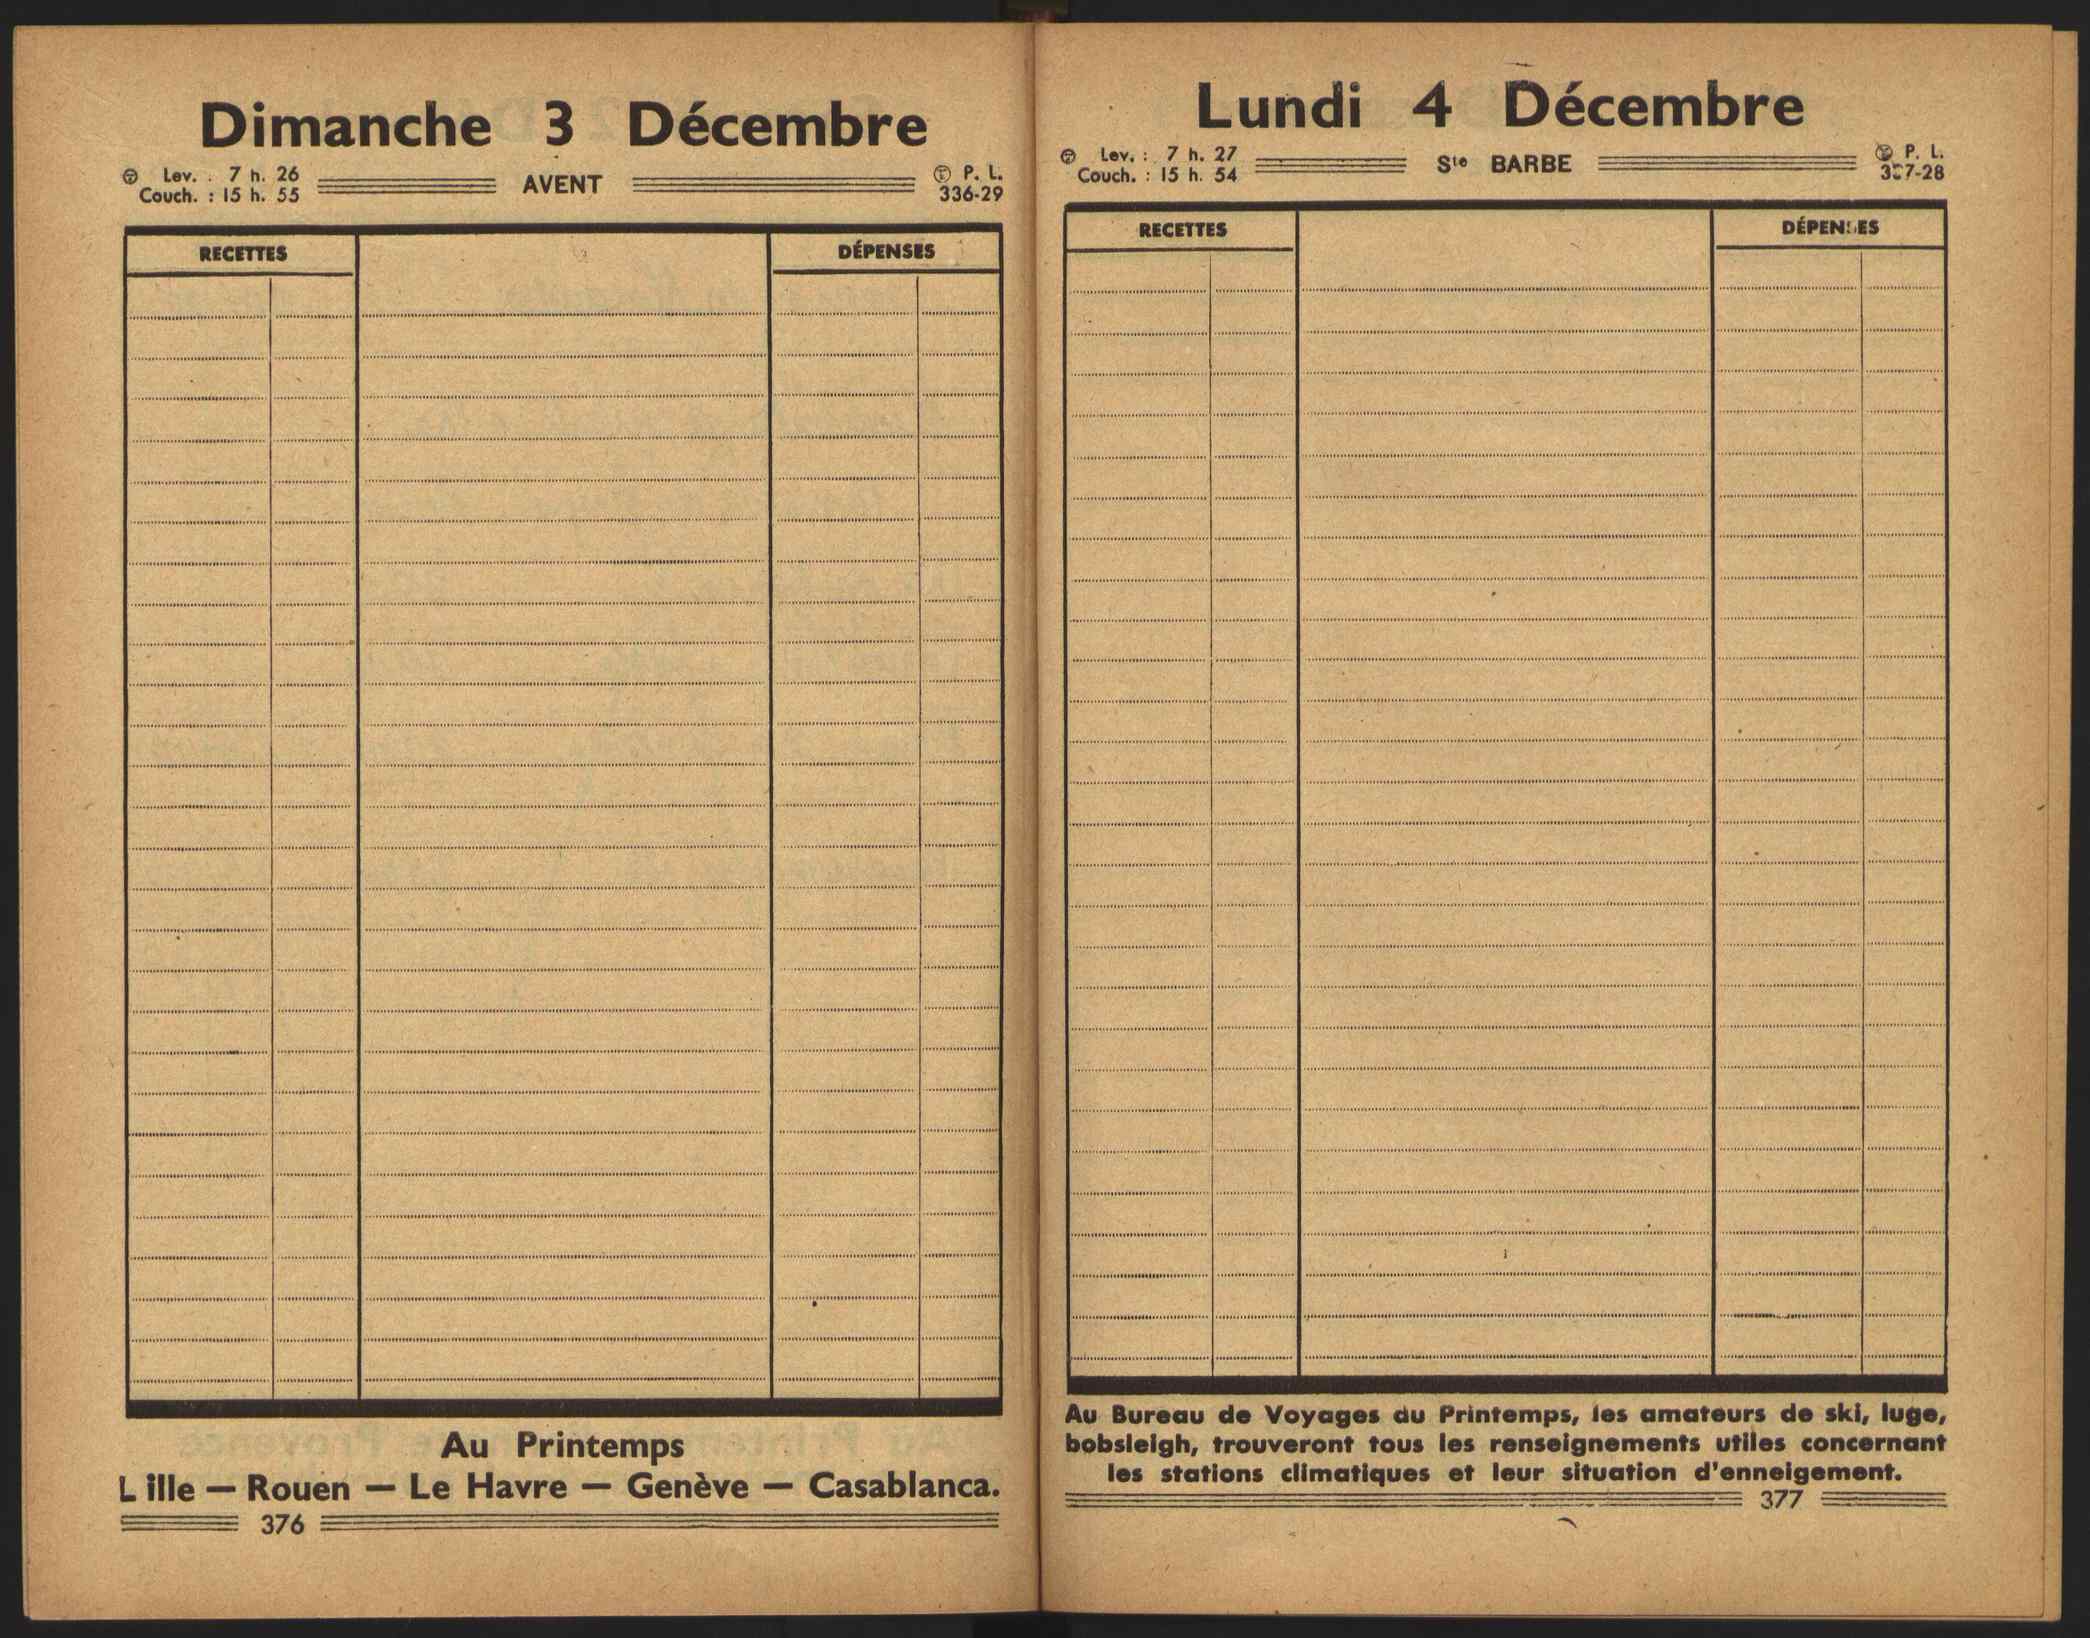 Dimanche 3 Décembre
Lev. : 7 h. 26
Couch. : 15 h. 55
AVENT
P. L.
336-29
RECETTES
DÉPENSES
Au Printemps
Lille — Rouen — Le Havre — Genève — Casablanca.
376
Lundi 4 Décembre
Lev. : 7 h. 27
Couch. : 15 h. 54
Ste BARBE
P. L.
337-28
RECETTES
DÉPENSES
Au Bureau de Voyages du Printemps, les amateurs de ski, luge,
bobsleigh, trouveront tous les renseignements utiles concernant
les stations climatiques et leur situation d'enneigement.
377